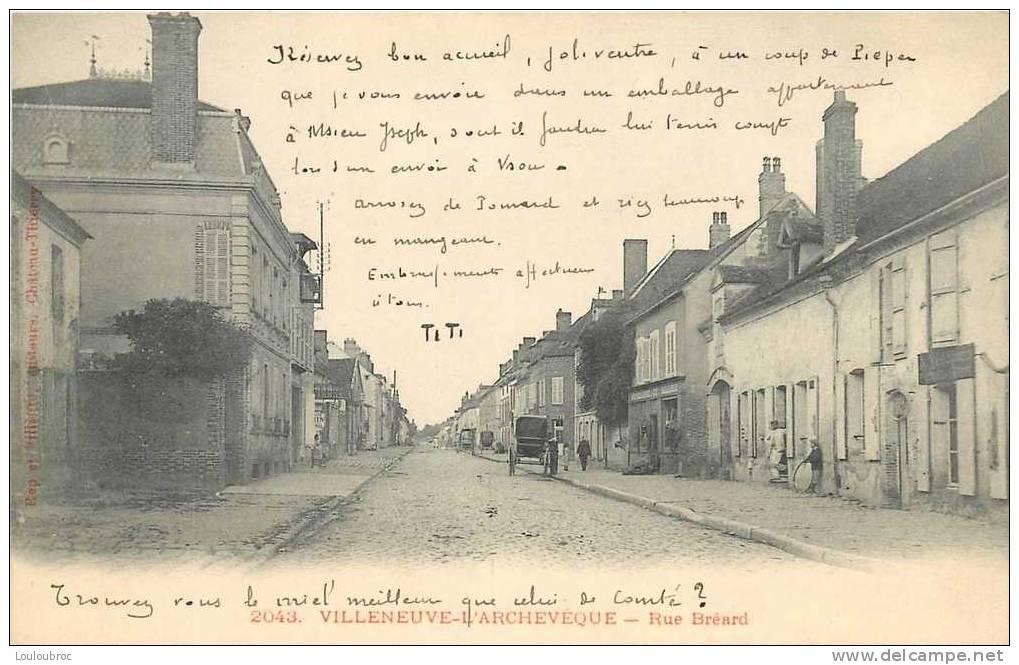 Réservez bon accueil, Joli ventre, à un coup de Pieper
que je vous envoie dans un emballage appartenant
à Msieu Jseph, dont il faudra lui tenir compt
lors d'un envoi à Vsou.
arrosez de Pomard et riez beaucoup
en mangeant.
Embrassements affectueux
à tous.
TITI
Rep et Filliette, éditeurs, Château-Thierry
Trouvez vous le miel meilleur que celui de Comté?
2043. VILLENEUVE-L'ARCHEVÊQUE — Rue Bréard
Photo: Louloubroc
www.delcampe.net